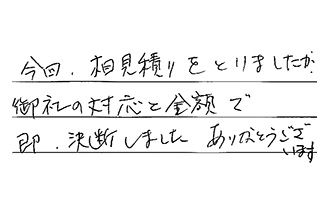 今回、相見積りをとりましたが、
御社の対応と金額で
即、決断しました ありがとうござ
います